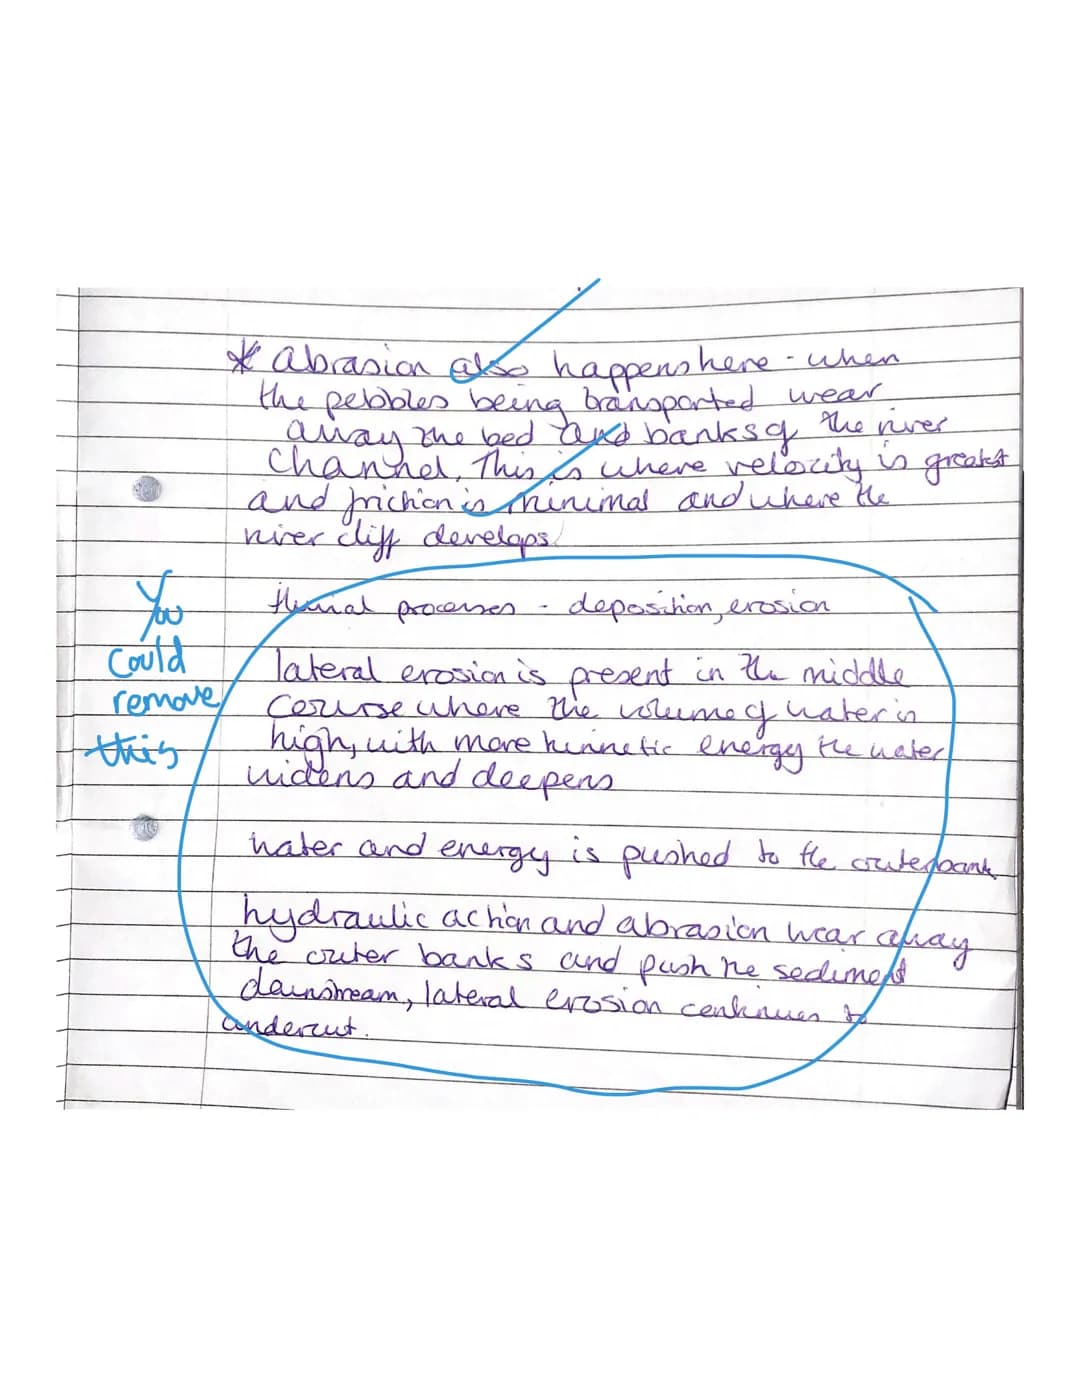 * abrasion also happens here - when
the pebbles being transported wear
away the bed and banks of the river
channel. This is where velocity is greatest
and friction is minimal and where the
river cliff develops.
fluvial processes - deposition, erosion
You
could
remove
this
lateral erosion is present in the middle
course where the volume of water is
high, with more kinnetic energy the water
widens and deepens
water and energy is pushed to the outerbank
hydraulic action and abrasion wear away
the outer banks and push the sediment
downstream, lateral erosion continues to
undercut.